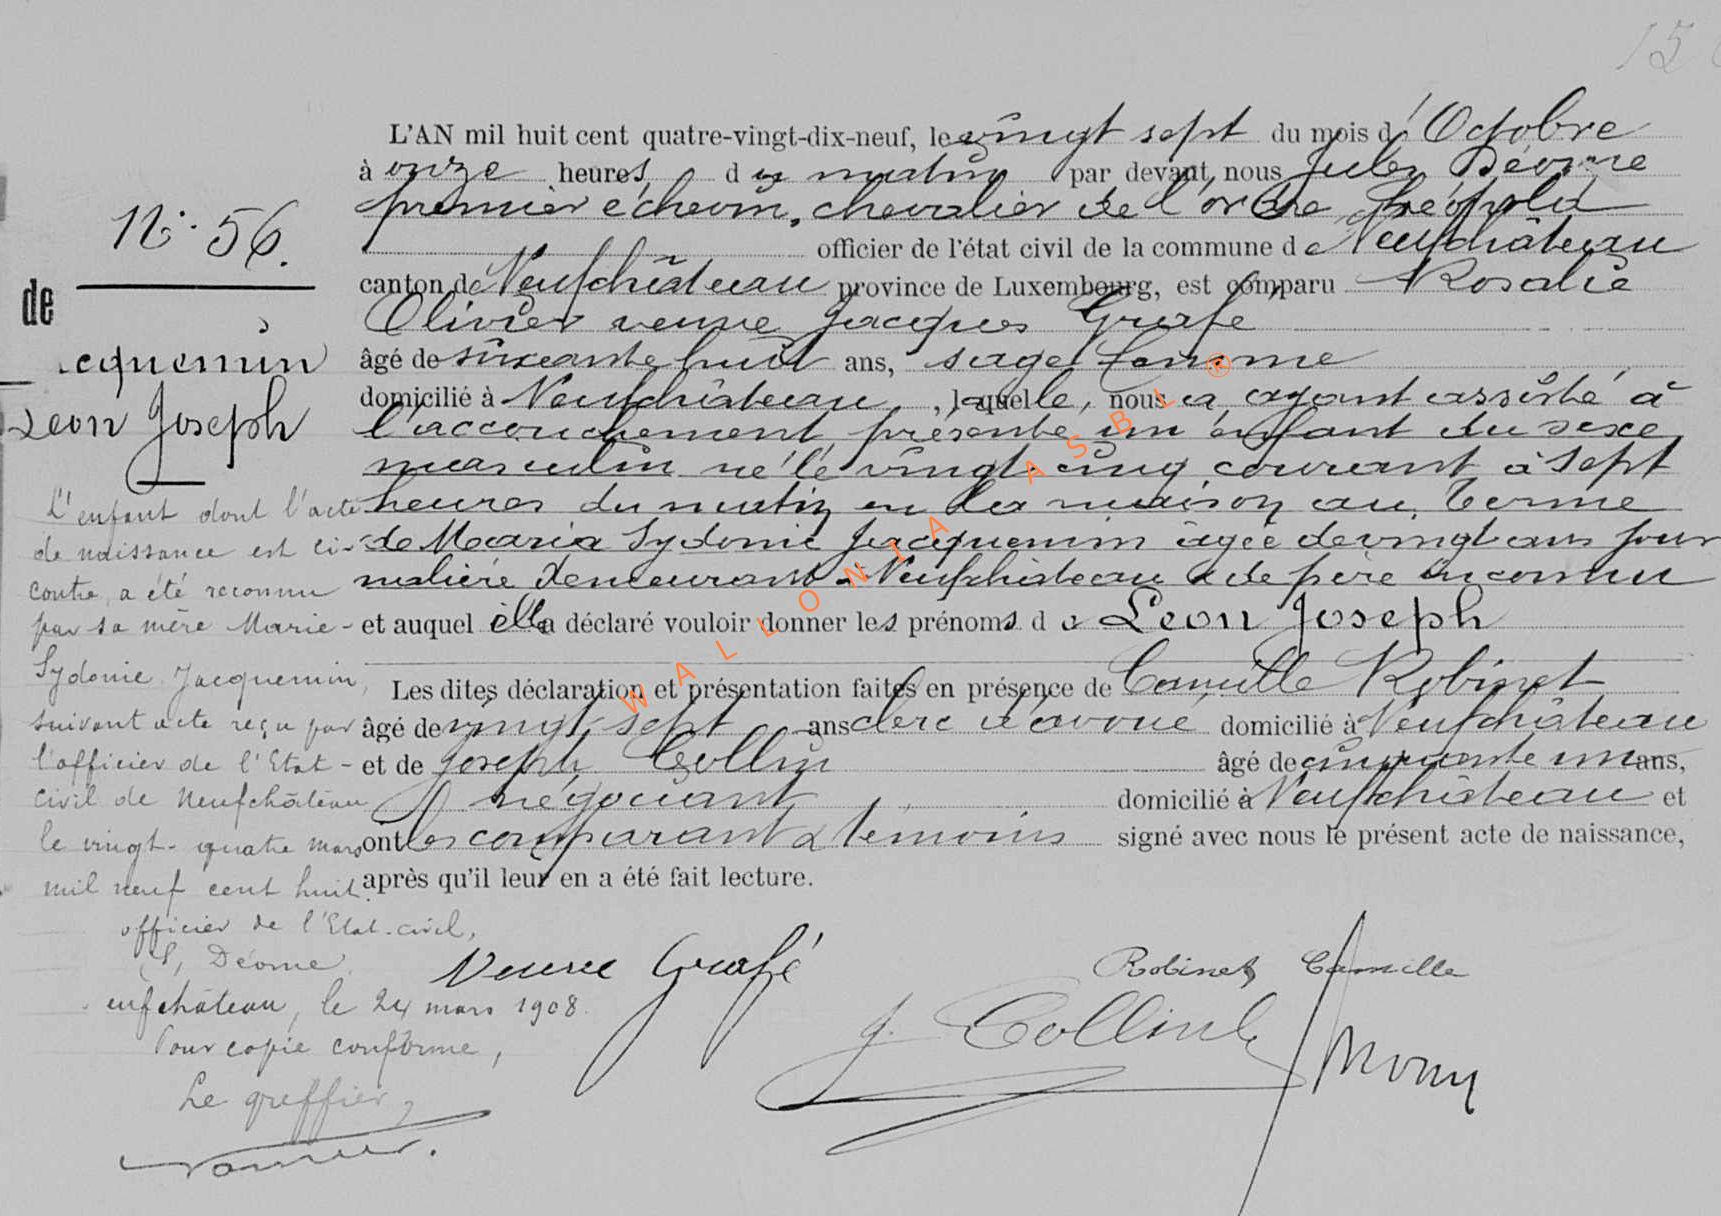 15
L'AN mil huit cent quatre-vingt-dix-neuf, le vingt sept du mois d'Octobre
à onze heures du matin par devant nous Jules Déome
premier échevin, chevalier de l'ordre Léopold
officier de l'état civil de la commune de Neufchâteau
canton de Neufchâteau province de Luxembourg, est comparu Rosalie
Olivier veuve Jacques Grafé
âgé de soixante huit ans, sage femme
domicilié à Neufchâteau, laquelle, nous a ayant assisté à
l'accouchement, présenté un enfant du sexe
masculin né le vingt cinq courant à sept
heures du matin en la maison au Terme
de Maria Sydonie Jacquemin âgée de vingt ans jour
nalière demeurant à Neufchâteau & de père inconnu
et auquel elle a déclaré vouloir donner les prénoms de Léon Joseph
Les dites déclaration et présentation faites en présence de Camille Robinet
âgé de vingt-sept ans clerc d'avoué domicilié à Neufchâteau
et de Joseph Collin âgé de cinquante un ans,
négociant domicilié à Neufchâteau et
ont les comparant & témoins signé avec nous le présent acte de naissance,
après qu'il leur en a été fait lecture.
N° 56.
de
cquemin
Léon Joseph
L'enfant dont l'acte
de naissance est ci-
contre, a été reconnu
par sa mère Marie-
Sydonie Jacquemin,
suivant acte reçu par
l'officier de l'Etat-
civil de Neufchâteau
le vingt-quatre mars
mil neuf cent huit.
officier de l'Etat-civil,
Déome
eufchâteau, le 24 mars 1908.
Pour copie conforme,
Le greffier,
Veuve Grafé
Robinet Camille
J. Collin
WALLONIA ASBL ®